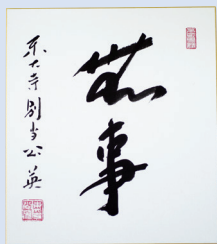 無事
東大寺別当公英